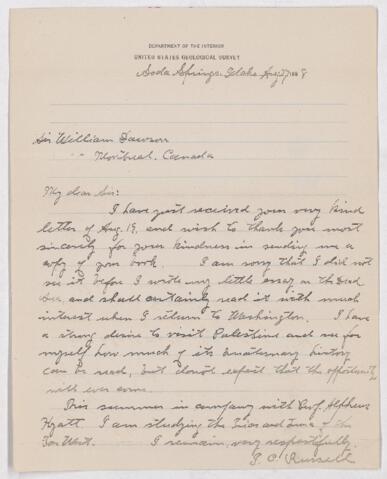 DEPARTMENT OF THE INTERIOR
UNITED STATES GEOLOGICAL SURVEY
Soda Springs. Idaho, Aug 27, 1888
Sir William Dawson
Montreal, Canada
My dear Sir:
I have just received your very kind
letter of Aug. 19, and wish to thank you most
sincerely for your kindness in sending me a
copy of your book. I am sorry that I did not
see it before I wrote my little essay on the Dead
Sea, and shall certainly read it with much
interest when I return to Washington. I have
a strong desire to visit Palestine and see for
myself how much of its Quaternary history
can be read, but do not expect that the opportunity
will ever come.
This summer in company with Prof. Alpheus
Hyatt I am studying the Trias and Jura of the
Far West. I remain, very respectfully,
I. C. Russell